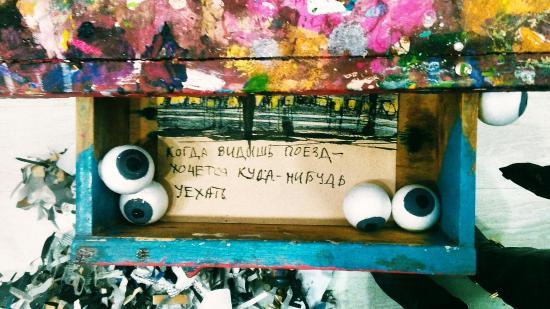 КОГДА ВИДИШЬ ПОЕЗД-
ХОЧЕТСЯ КУДА-НИБУДЬ
УЕХАТЬ